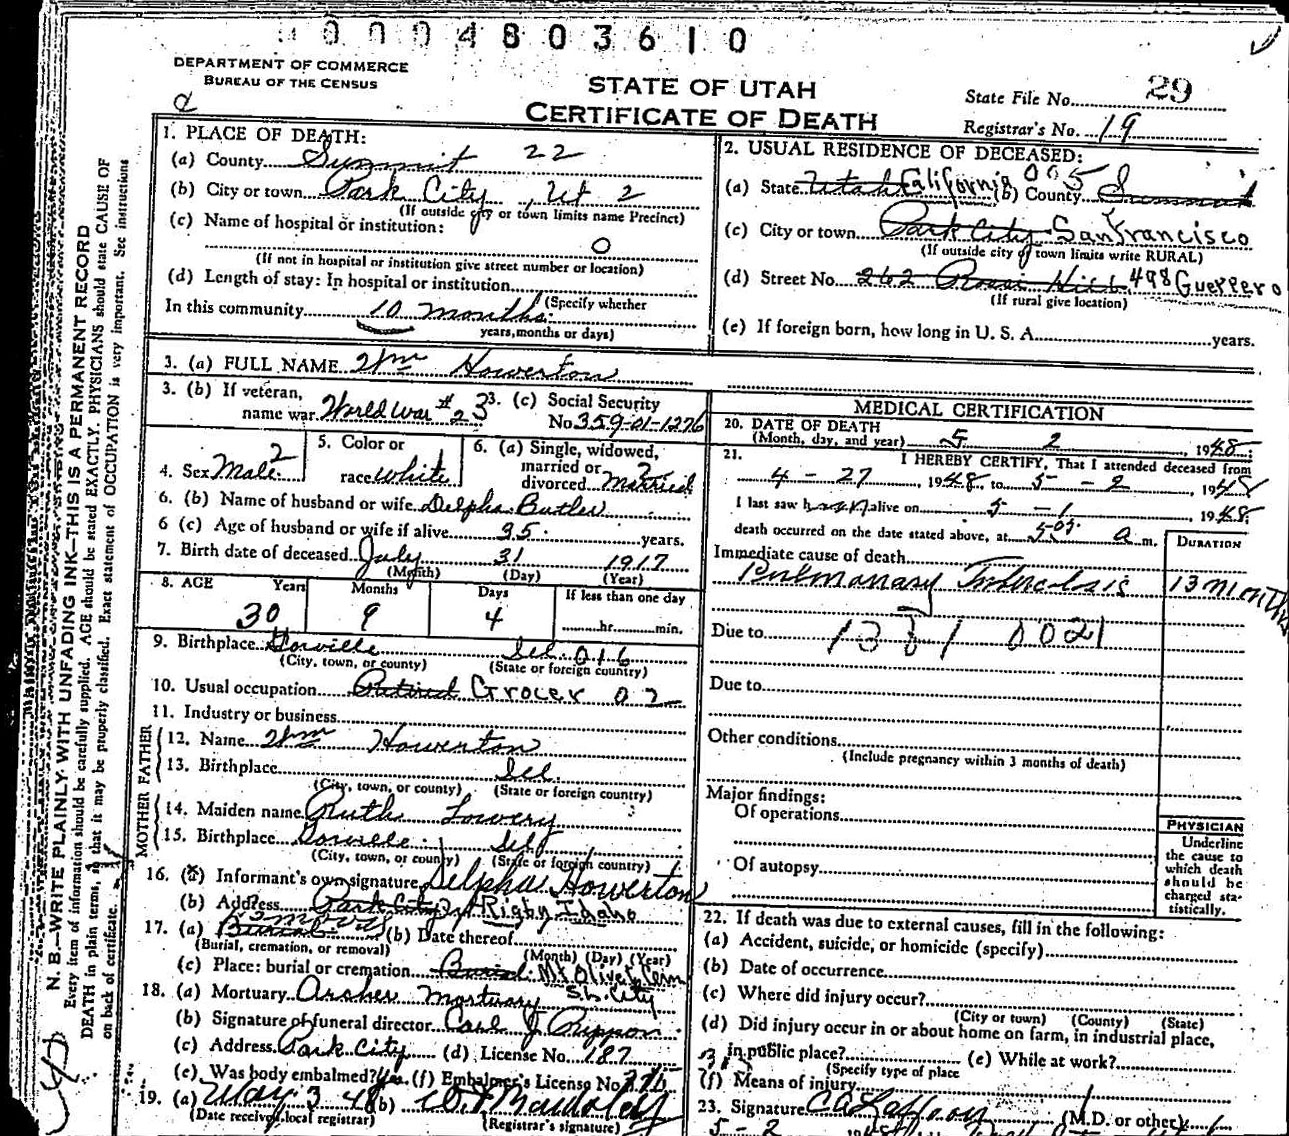 00004803610
DEPARTMENT OF COMMERCE
BUREAU OF THE CENSUS
STATE OF UTAH
CERTIFICATE OF DEATH
State File No. 29
Registrar's No. 19
N. B.—WRITE PLAINLY WITH UNFADING INK—THIS IS A PERMANENT RECORD
Every item of information should be carefully supplied. AGE should be stated EXACTLY. PHYSICIANS should state CAUSE OF
DEATH in plain terms, so that it may be properly classified. Exact statement of OCCUPATION is very important. See instructions
on back of certificate.
1. PLACE OF DEATH:
(a) County Summit 22
(b) City or town Park City, Ut 2
(If outside city or town limits name Precinct)
(c) Name of hospital or institution:
0
(If not in hospital or institution give street number or location)
(d) Length of stay: In hospital or institution
(Specify whether
In this community 10 months
years, months or days)
2. USUAL RESIDENCE OF DECEASED:
(a) State Utah California 005 (b) County Summit
(c) City or town Park City San Francisco
(If outside city or town limits write RURAL)
(d) Street No. 262 Rossi Hill 498 Guerrero
(If rural give location)
(e) If foreign born, how long in U. S. A. years.
3. (a) FULL NAME Wm Howerton
3. (b) If veteran,
name war World War #2 3
3. (c) Social Security
No 359-01-1276
4. Sex Male 2
5. Color or
race White 1
6. (a) Single, widowed,
married or
divorced Married 2
6. (b) Name of husband or wife Delpha Butler
6 (c) Age of husband or wife if alive 35 years.
7. Birth date of deceased July 31 1917
(Month) (Day) (Year)
8. AGE Years Months Days If less than one day
30 9 4 hr. min.
9. Birthplace 016
(City, town, or county) (State or foreign country)
10. Usual occupation Retired Grocer 02
11. Industry or business
FATHER
12. Name Wm Howerton
13. Birthplace
(City, town, or county) (State or foreign country)
MOTHER
14. Maiden name Ruth Lowery
15. Birthplace
(City, town, or county) (State or foreign country)
16. (a) Informant's own signature Delpha Howerton
(b) Address Park City Ut Rigby Idaho
17. (a) Burial Removal (b) Date thereof
(Burial, cremation, or removal) (Month) (Day) (Year)
(c) Place: burial or cremation Burial Mt Olivet Cem
S.L. City
18. (a) Mortuary Archer Mortuary
(b) Signature of funeral director Carl J Rippon
(c) Address Park City (d) License No. 187
(e) Was body embalmed? Yes (f) Embalmer's License No
19. (a) May 3 48 (b)
(Date received local registrar) (Registrar's signature)
MEDICAL CERTIFICATION
20. DATE OF DEATH
(Month, day, and year) 5 2, 1948
21. I HEREBY CERTIFY, That I attended deceased from
4 - 27, 1948 to 5 - 2, 1948
I last saw him alive on 5 - 1 1948
death occurred on the date stated above, at 5:05 a m.
DURATION
Immediate cause of death
Pulmonary Tuberculosis 13 months
Due to 1331 0021
Due to
Other conditions
(Include pregnancy within 3 months of death)
Major findings:
Of operations
Of autopsy
PHYSICIAN
Underline
the cause to
which death
should be
charged sta-
tistically.
22. If death was due to external causes, fill in the following:
(a) Accident, suicide, or homicide (specify)
(b) Date of occurrence
(c) Where did injury occur?
(City or town) (County) (State)
(d) Did injury occur in or about home on farm, in industrial place,
in public place? (e) While at work?
(Specify type of place
(f) Means of injury
23. Signature (M.D. or other)
5 - 2